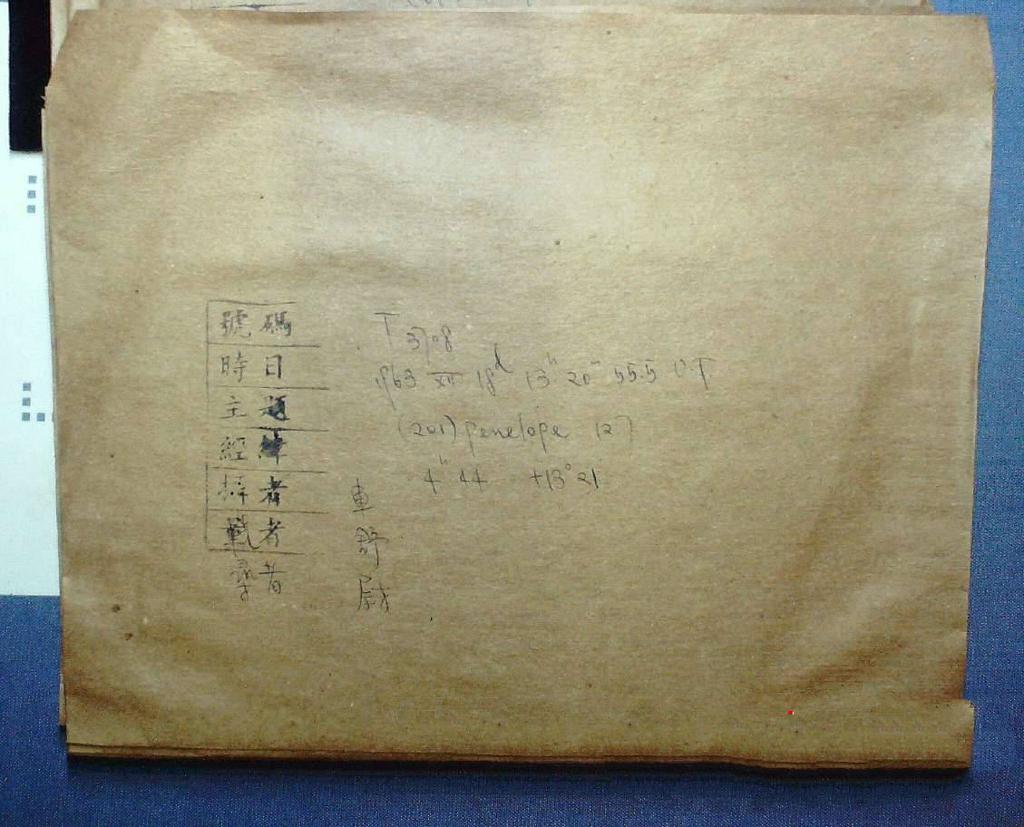 號碼 T 3708
時日 1963 XII 18d 13h 20m 55.5 U.T
主題 (201) Penelope
經緯 4h 44 +13° 21
攝者 車
載者 舒
尋者 尉